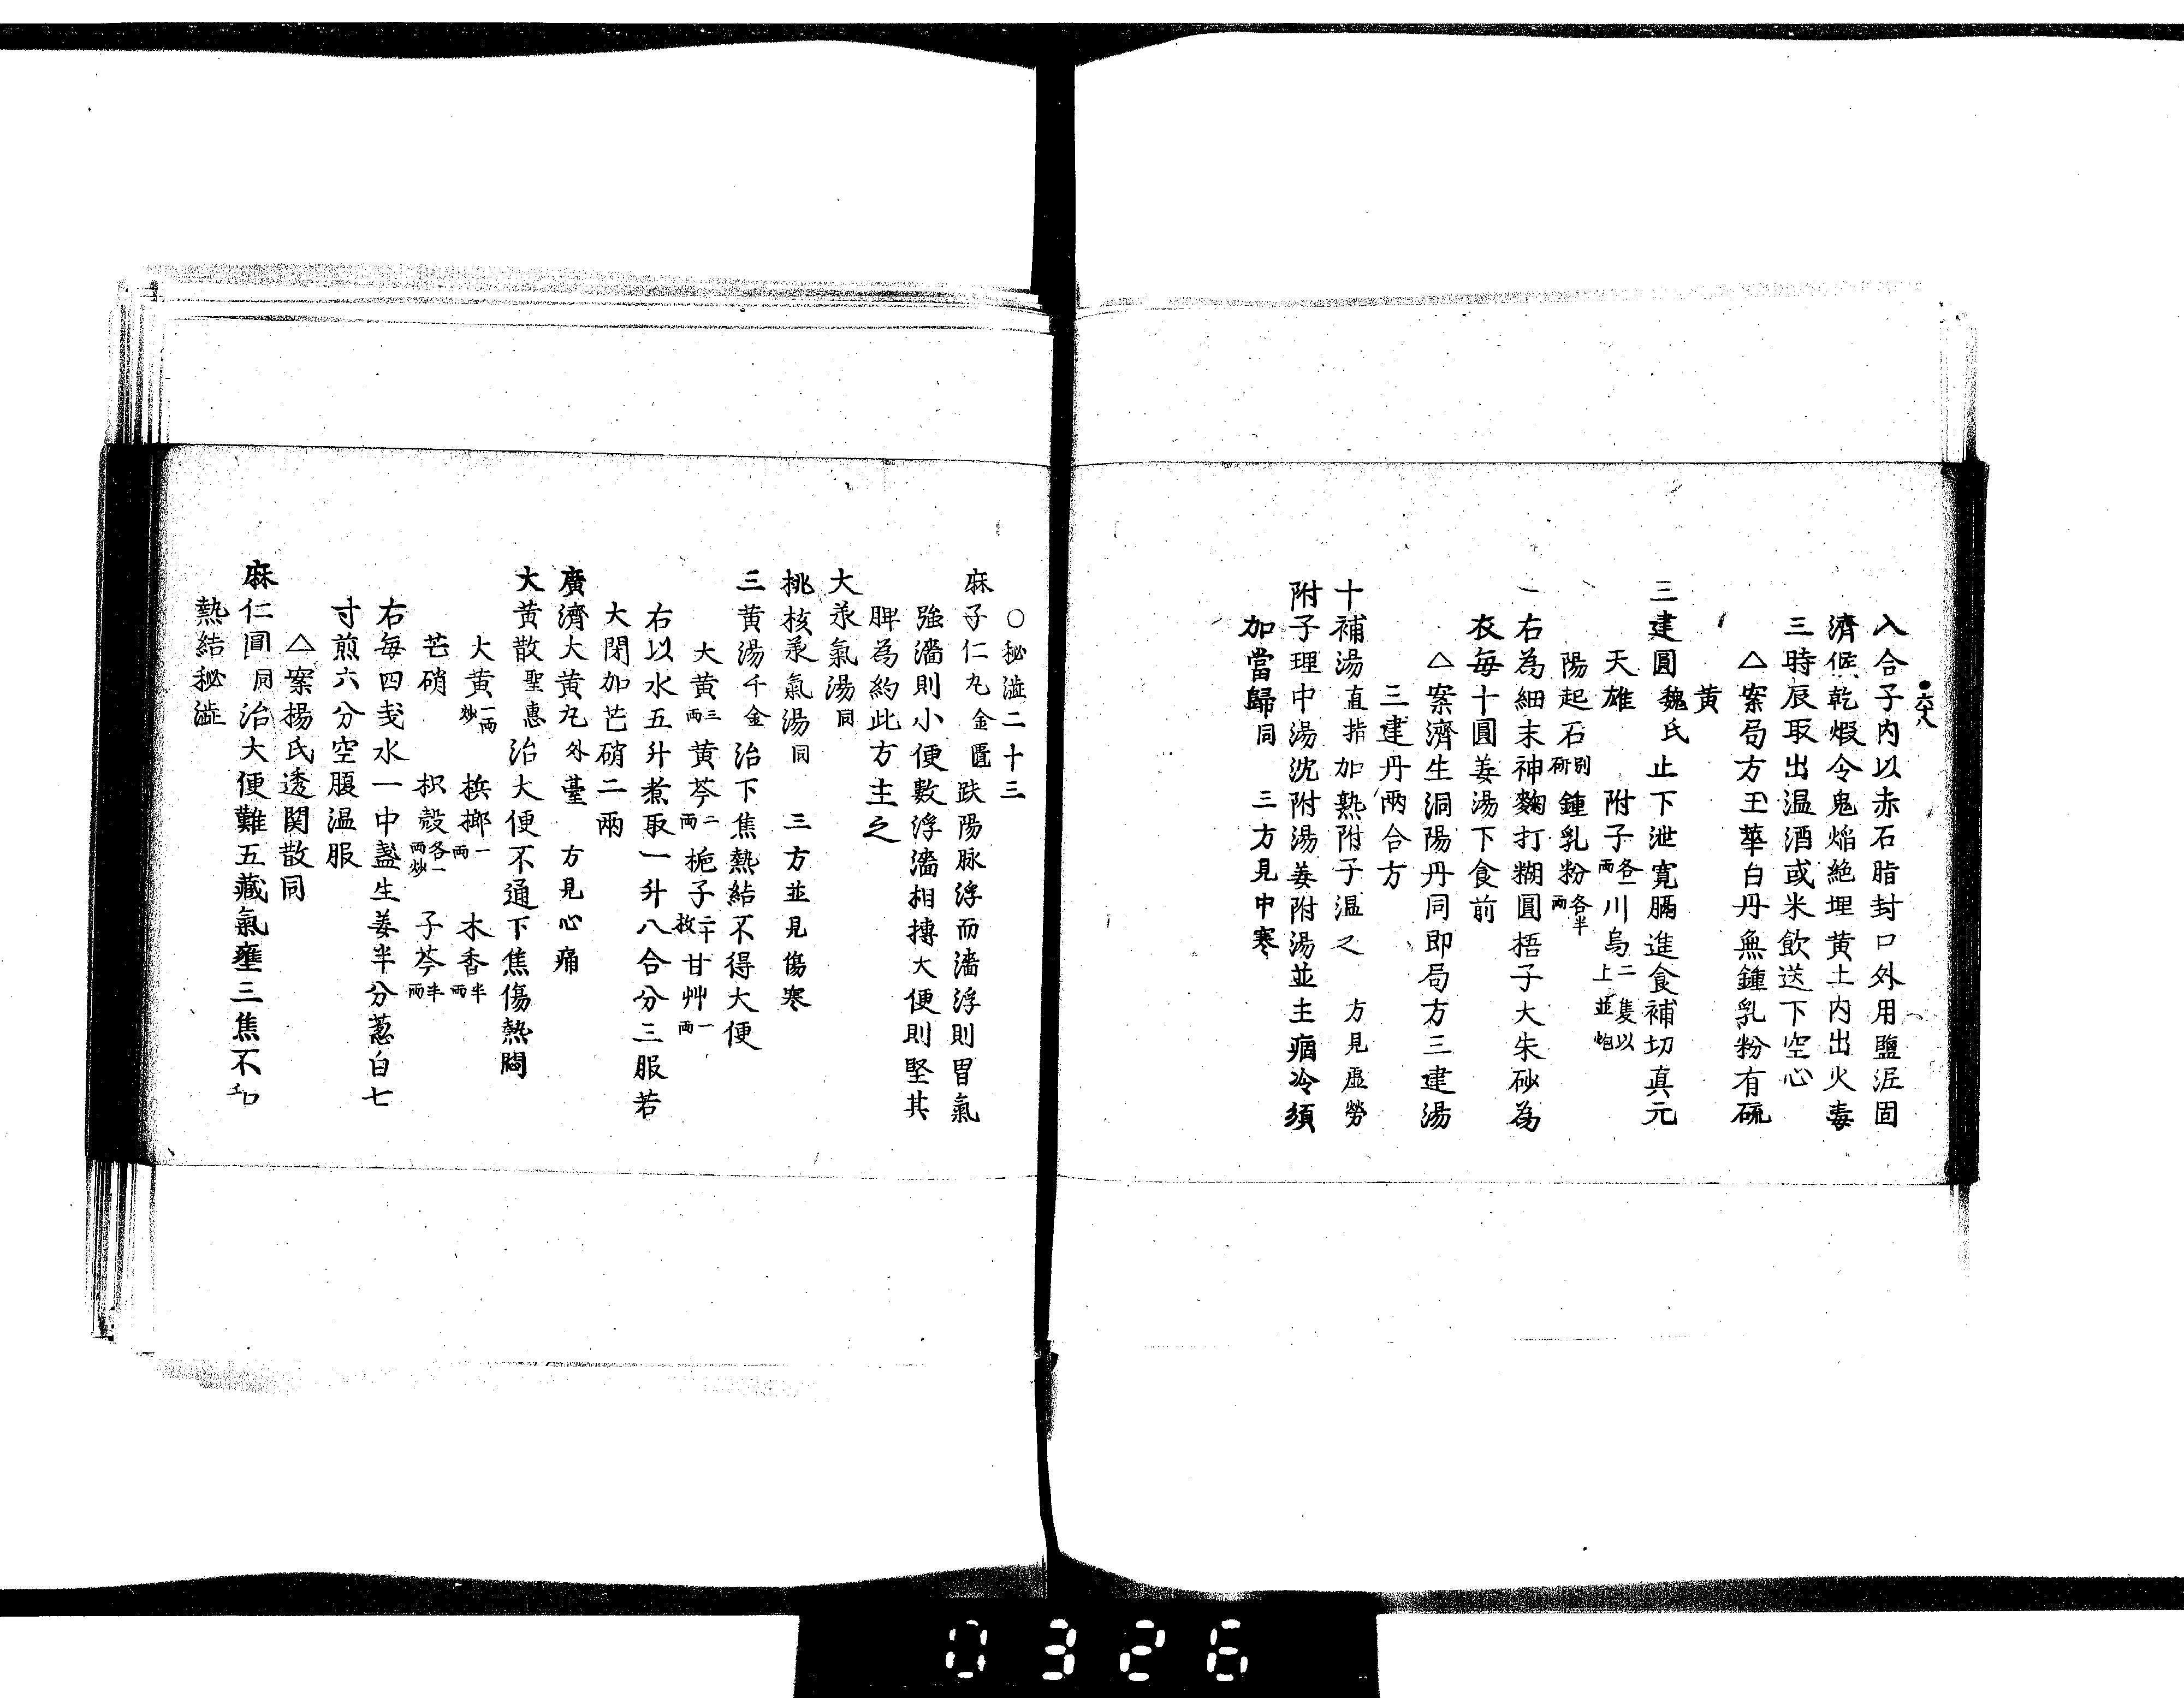 ●六十八
入合子内以赤石脂封口外用鹽泥固
濟候乾煅令鬼焔絶埋黄土内出火毒
三時辰取出温酒或米飲送下空心
△案局方玉華白丹無鍾乳粉有硫
黄
三建圓魏氏止下泄寛膈進食補切真元
天雄 附子各一兩 川烏二隻以上並炮
陽起石別研 鍾乳粉各半兩
右為細末神麹打糊圓梧子大朱砂為
衣每十圓姜湯下食前
△案濟生洞陽丹同即局方三建湯
三建丹兩合方
十補湯直指加熟附子温之 方見虛勞
附子理中湯沈附湯姜附湯並主痼冷須
加當歸同 三方見中寒
○秘澁二十三
麻子仁丸金匱趺陽脉浮而濇浮則胃氣
強濇則小便數浮濇相搏大便則堅其
脾為約此方主之
大承氣湯同
桃核承氣湯同 三方並見傷寒
三黄湯千金治下焦熱結不得大便
大黄三兩 黄芩二兩 梔子二十枚 甘艸一兩
右以水五升煮取一升八合分三服若
大閉加芒硝二兩
廣濟大黄丸外臺 方見心痛
大黄散聖惠治大便不通下焦傷熱悶
大黄一兩炒 梹榔一兩 木香半兩
芒硝 枳殼各一兩炒 子芩半兩
右每四戔水一中盞生姜半分蔥白七
寸煎六分空腹温服
△案揚氏透関散同
麻仁圓同治大便難五藏氣壅三焦不和
熱結秘澁
0326